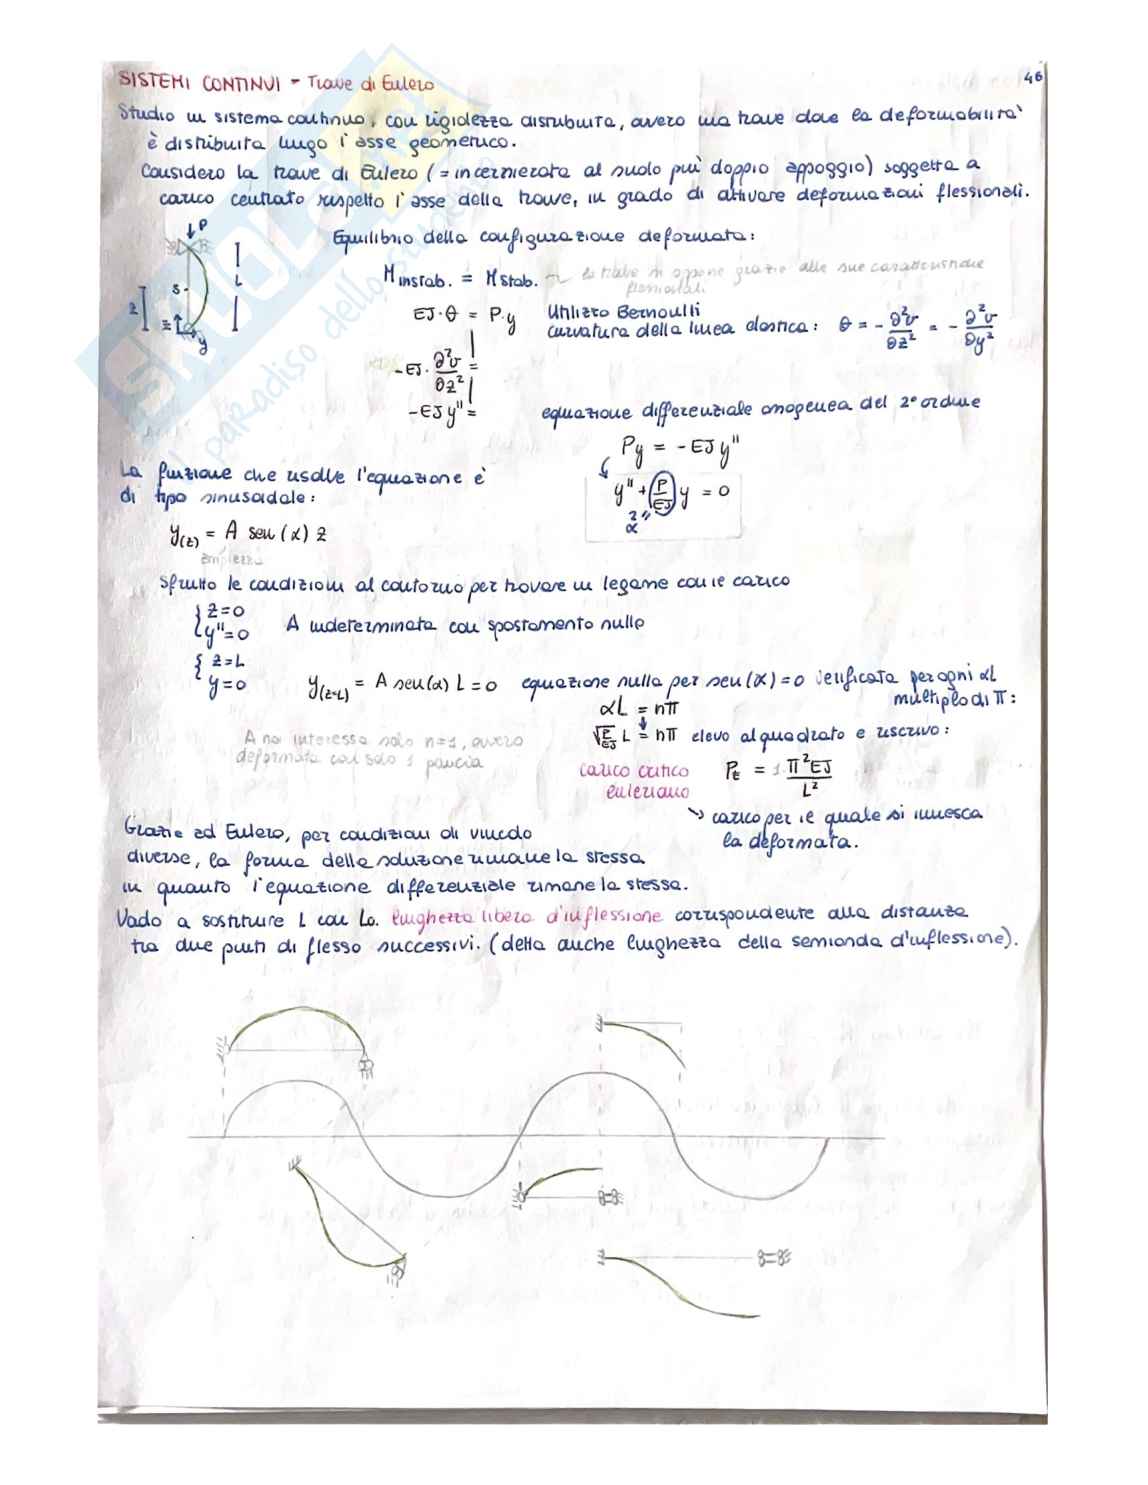 46
SISTEMI CONTINUI - Trave di Eulero
Studio un sistema continuo, con rigidezza distribuita, ovvero una trave dove la deformabilità
è distribuita lungo l'asse geometrico.
Considero la trave di Eulero (= incernierata al suolo più doppio appoggio) soggetta a
carico centrato rispetto l'asse della trave, in grado di attivare deformazioni flessionali.
P
Equilibrio della configurazione deformata:
L
S
z
y
M instab. = M stab. ~ la trave si oppone grazie alle sue caratteristiche
flessionali
EJ·θ = P·y
Utilizzo Bernoulli
curvatura della linea elastica: θ = - ∂²v/∂z² = - ∂²v/∂y²
-EJ· ∂²v/∂z² =
-EJy'' =
equazione differenziale omogenea del 2° ordine
Py = -EJy''
La funzione che risolve l'equazione è
di tipo sinusoidale:
y'' + (P/EJ) y = 0
α² =
y(z) = A sen (α) z
ampiezza
Sfrutto le condizioni al contorno per trovare un legame con il carico
{ z=0
y''=0
A indeterminata con spostamento nullo
{ z=L
y=0
y(z=L) = A sen(α) L = 0 equazione nulla per sen(α) = 0 verificata per ogni αL
multiplo di π:
αL = nπ
√P/EJ L = nπ elevo al quadrato e riscrivo:
A noi interessa solo n=1, ovvero
deformata con solo 1 pancia
carico critico
euleriano
PE = 1· π²EJ/L²
↳ carico per il quale si innesca
la deformata.
Grazie ad Eulero, per condizioni di vincolo
diverse, la forma della soluzione rimane la stessa
in quanto l'equazione differenziale rimane la stessa.
Vado a sostituire L con Lo. lunghezza libera d'inflessione corrispondente alla distanza
tra due punti di flesso successivi. (detta anche lunghezza della semionda d'inflessione).
SKUOLA.net
il paradiso dello studente